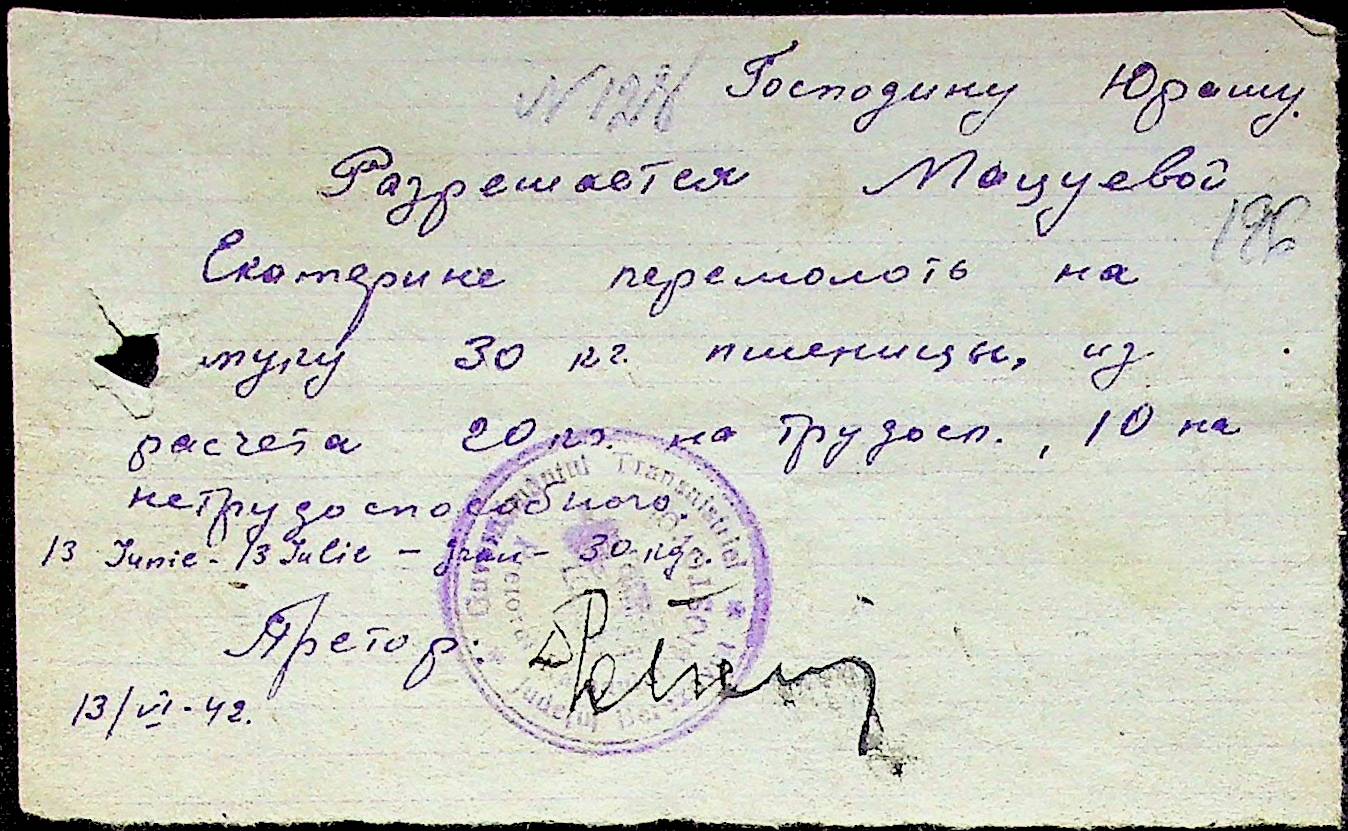 Господину Юрашу.
Разрешается Мацуевой
196
Екатерине перемолоть на
муку 30 кг. пшеницы, из
расчета 20 кг. на трудосп., 10 на
нетрудоспособного.
13 Iunie - 13 Iulie - grâu - 30 kgr.
Претор:
13/VI-42.
Guvernământul Transnistriei
Judeţul